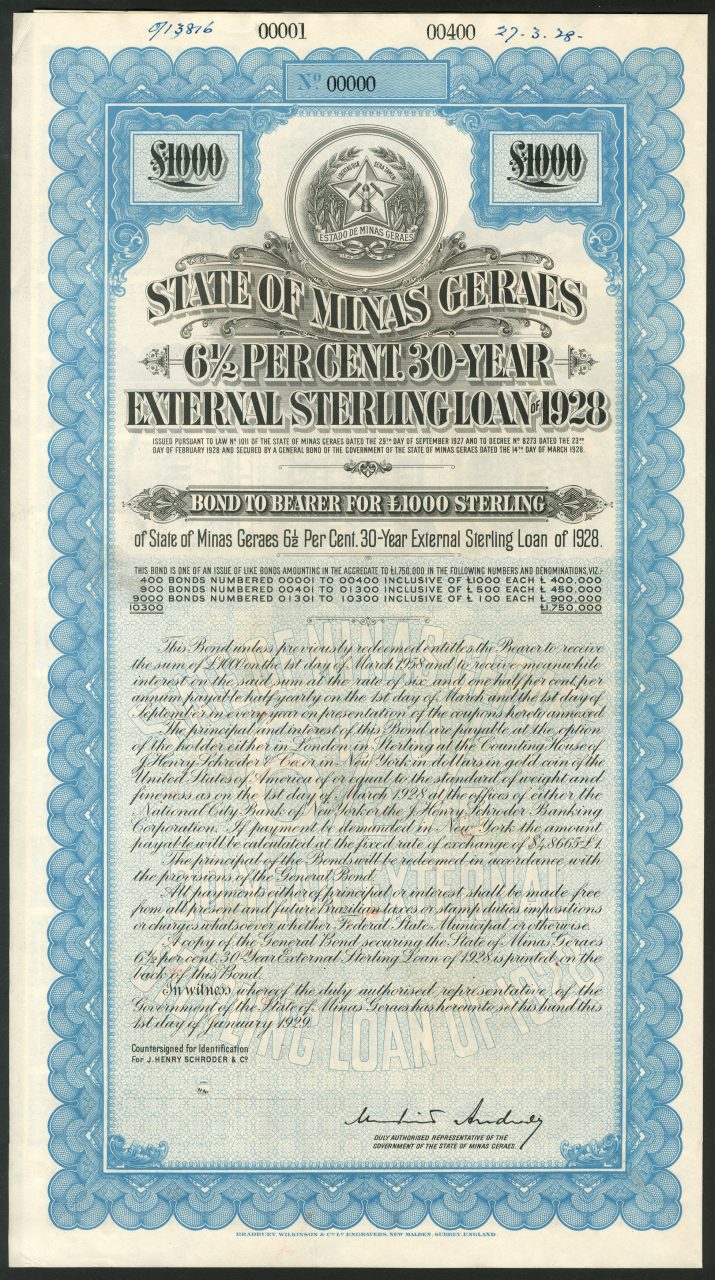 0/13816 00001 00400 27-3-28-
Nº 00000
£1000 £1000
ESTADO DE MINAS GERAES
STATE OF MINAS GERAES
6½ PER CENT. 30-YEAR
EXTERNAL STERLING LOAN of 1928
ISSUED PURSUANT TO LAW Nº 1011 OF THE STATE OF MINAS GERAES DATED THE 29TH DAY OF SEPTEMBER 1927 AND TO DECREE Nº 8273 DATED THE 23RD
DAY OF FEBRUARY 1928 AND SECURED BY A GENERAL BOND OF THE GOVERNMENT OF THE STATE OF MINAS GERAES DATED THE 14TH DAY OF MARCH 1928.
BOND TO BEARER FOR £1000 STERLING
of State of Minas Geraes 6½ Per Cent. 30-Year External Sterling Loan of 1928.
THIS BOND IS ONE OF AN ISSUE OF LIKE BONDS AMOUNTING IN THE AGGREGATE TO £1,750,000 IN THE FOLLOWING NUMBERS AND DENOMINATIONS, VIZ:-
400 BONDS NUMBERED 00001 TO 00400 INCLUSIVE OF £1000 EACH £ 400,000
900 BONDS NUMBERED 00401 TO 01300 INCLUSIVE OF £ 500 EACH £ 450,000
9000 BONDS NUMBERED 01301 TO 10300 INCLUSIVE OF £ 100 EACH £ 900,000
10300 £1,750,000
This Bond unless previously redeemed entitles the Bearer to receive
the sum of £1000 on the 1st day of March 1958 and to receive meanwhile
interest on the said sum at the rate of six and one half per cent, per
annum payable half yearly on the 1st day of March and the 1st day of
September in every year on presentation of the coupons hereto annexed
The principal and interest of this Bond are payable at the option
of the holder either in London in Sterling at the Counting House of
J. Henry Schroder & Co. or in New York in dollars in gold coin of the
United States of America of or equal to the standard of weight and
fineness as on the 1st day of March 1928 at the offices of either the
National City Bank of New York or the J. Henry Schroder Banking
Corporation. If payment be demanded in New York the amount
payable will be calculated at the fixed rate of exchange of $4.8665=£1.
The principal of the Bonds will be redeemed in accordance with
the provisions of the General Bond.
All payments either of principal or interest shall be made free
from all present and future Brazilian taxes or stamp duties impositions
or charges whatsoever whether Federal State Municipal or otherwise.
A copy of the General Bond securing the State of Minas Geraes
6½ per cent. 30-Year External Sterling Loan of 1928 is printed on the
back of this Bond.
In witness whereof the duly authorised representative of the
Government of the State of Minas Geraes has hereunto set his hand this
1st day of January 1929.
Countersigned for Identification
For J. HENRY SCHRODER & Cº
DULY AUTHORISED REPRESENTATIVE OF THE
GOVERNMENT OF THE STATE OF MINAS GERAES.
BRADBURY, WILKINSON & Cº Lº ENGRAVERS, NEW MALDEN, SURREY, ENGLAND.